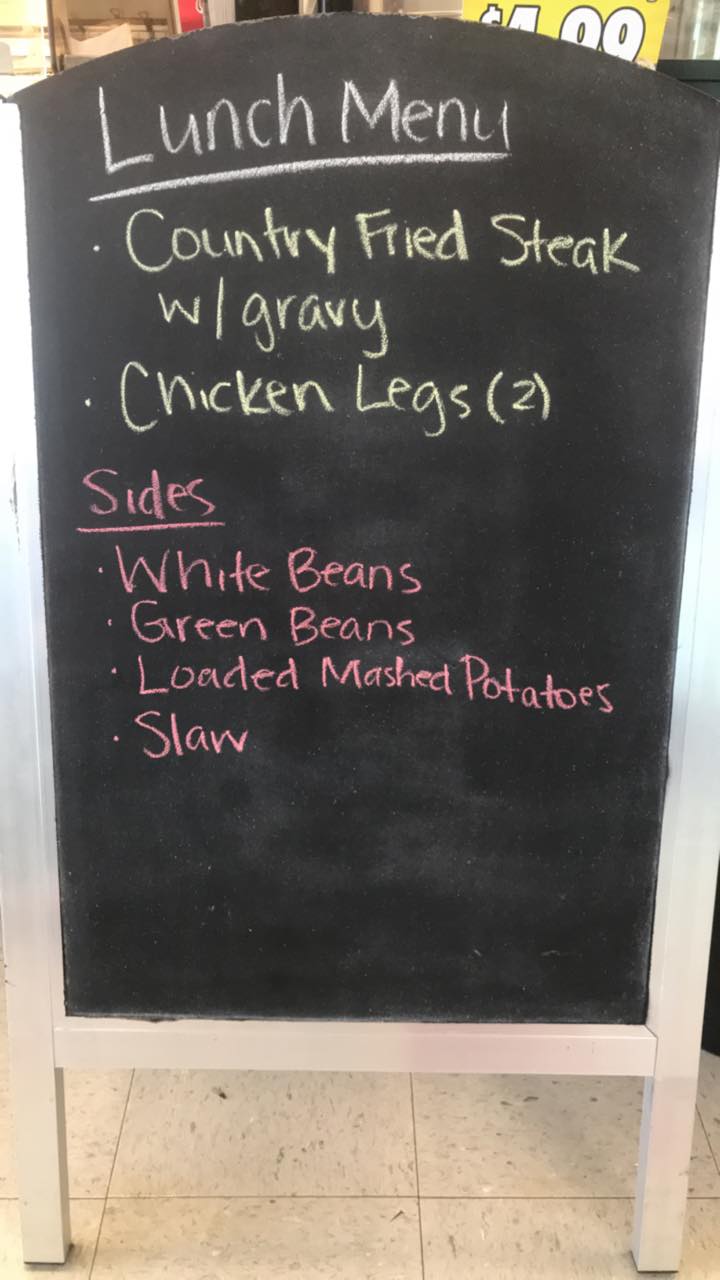 $4.99
Lunch Menu
· Country Fried Steak
w/gravy
· Chicken Legs (2)
Sides
· White Beans
· Green Beans
· Loaded Mashed Potatoes
· Slaw